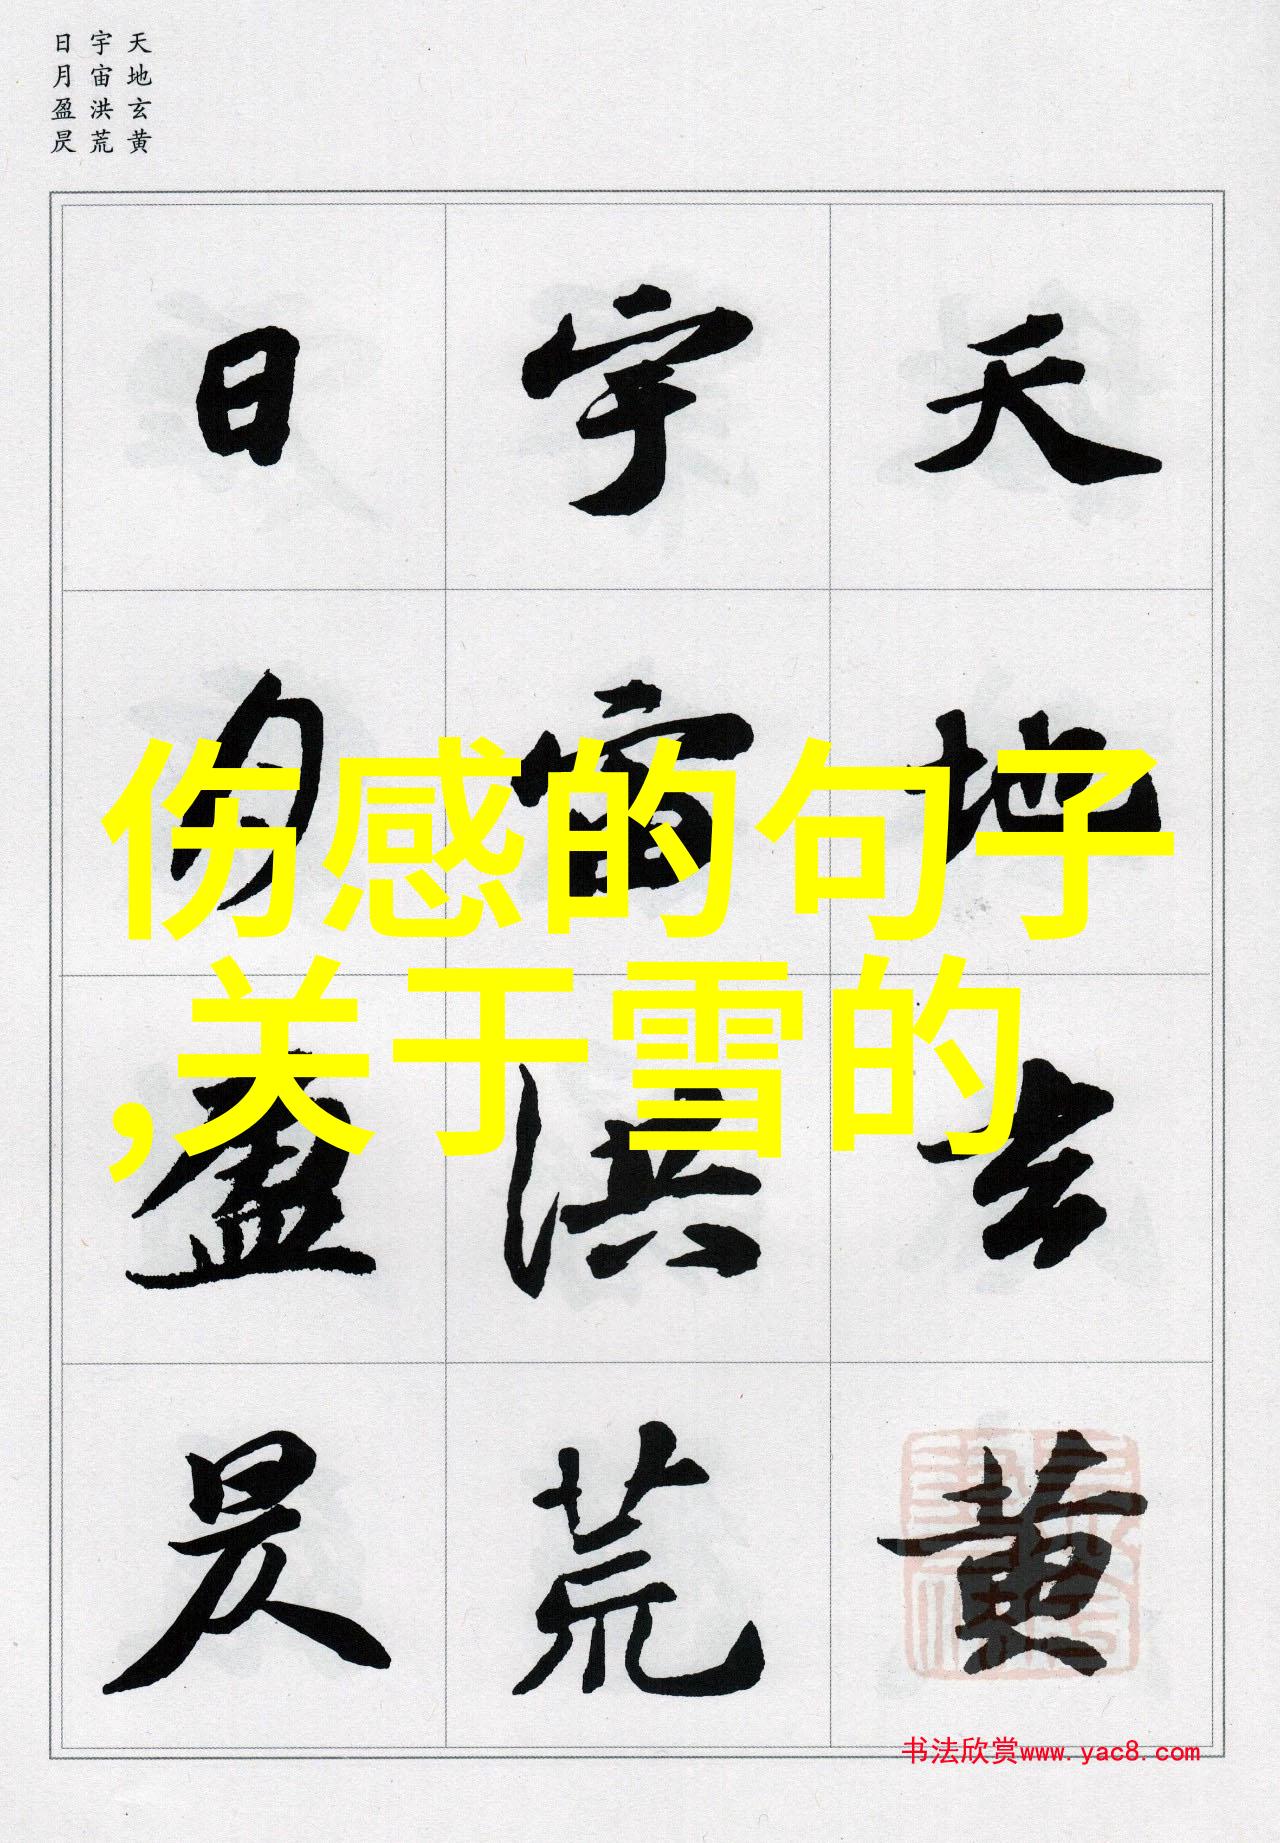 天地玄黄
宇宙洪荒
日月盈昃
天地玄黄
宇宙洪荒
日月盈昃
伤感的句子
,关于雪的
书法欣赏www.yac8.com